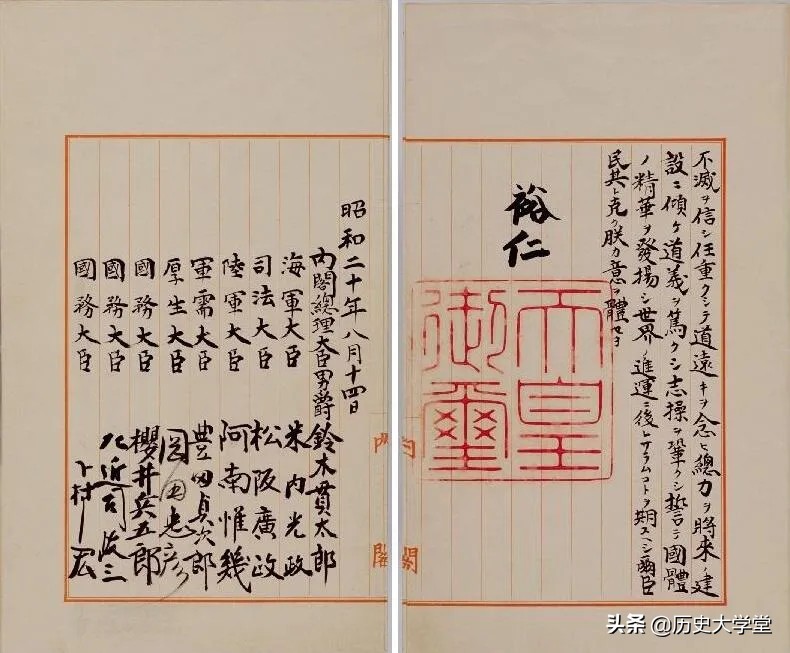 不滅ヲ信シ任重クシテ道遠キヲ念ヒ總力ヲ將來ノ建
設ニ傾ケ道義ヲ篤クシ志操ヲ鞏クシ誓テ國體
ノ精華ヲ發揚シ世界ノ進運ニ後レサラムコトヲ期スヘシ爾臣
民其レ克ク朕カ意ヲ體セヨ
裕仁
天皇
御璽
内閣
昭和二十年八月十四日
内閣總理大臣男爵 鈴木貫太郎
海軍大臣 米内光政
司法大臣 松阪廣政
陸軍大臣 阿南惟幾
軍需大臣 豊田貞次郎
厚生大臣 岡田忠彦
國務大臣 櫻井兵五郎
國務大臣 左近司政三
國務大臣 下村宏
头条 @历史大学堂